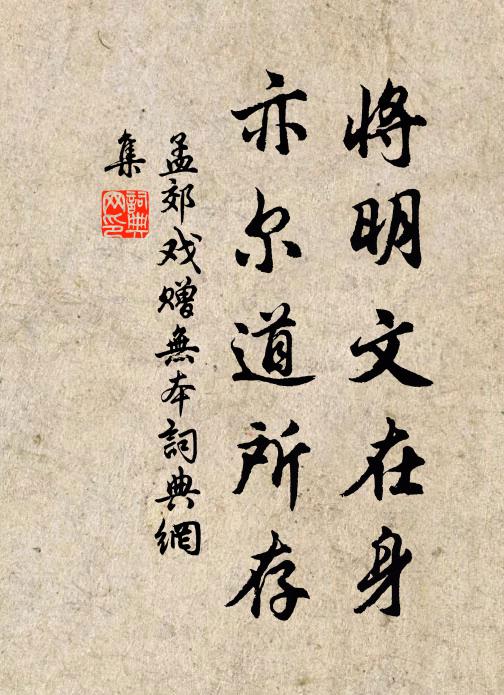 将明文在身
亦尔道所存
孟郊戏赠無本詞典網
集
詞典
网印